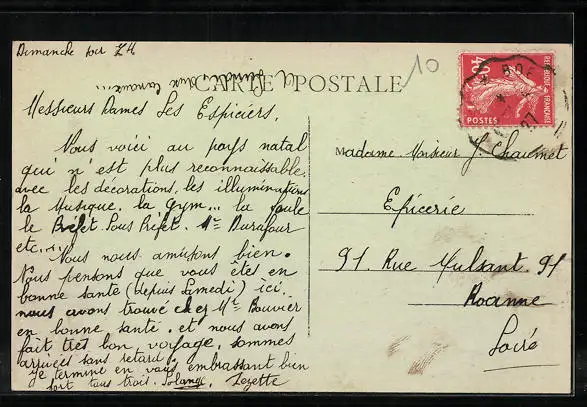 Dimanche soir 7H
CARTE POSTALE
10
40c
REPUBLIQUE FRANCAISE
POSTES
27
Messieurs Dames Les Epiciers,
Vous voici au pays natal
qui n'est plus reconnaissable
avec les décorations, les illuminations
la Musique, la Gym... la foule
le Préfet. Sous Préfet. Mr Durafour
etc...
Nous nous amusons bien.
Nous pensons que vous êtes en
bonne santé (depuis Samedi) ici
nous avons trouvé chez Me Bouvier
en bonne santé. et nous avons
fait tres bon voyage, sommes
arrivées sans retard.
Je termine en vous embrassant bien
fort tous trois. Solange Zezette
Madame. Monsieur J. Chaumet
Epicerie
91. Rue Mulsant. 91
Roanne
Loire